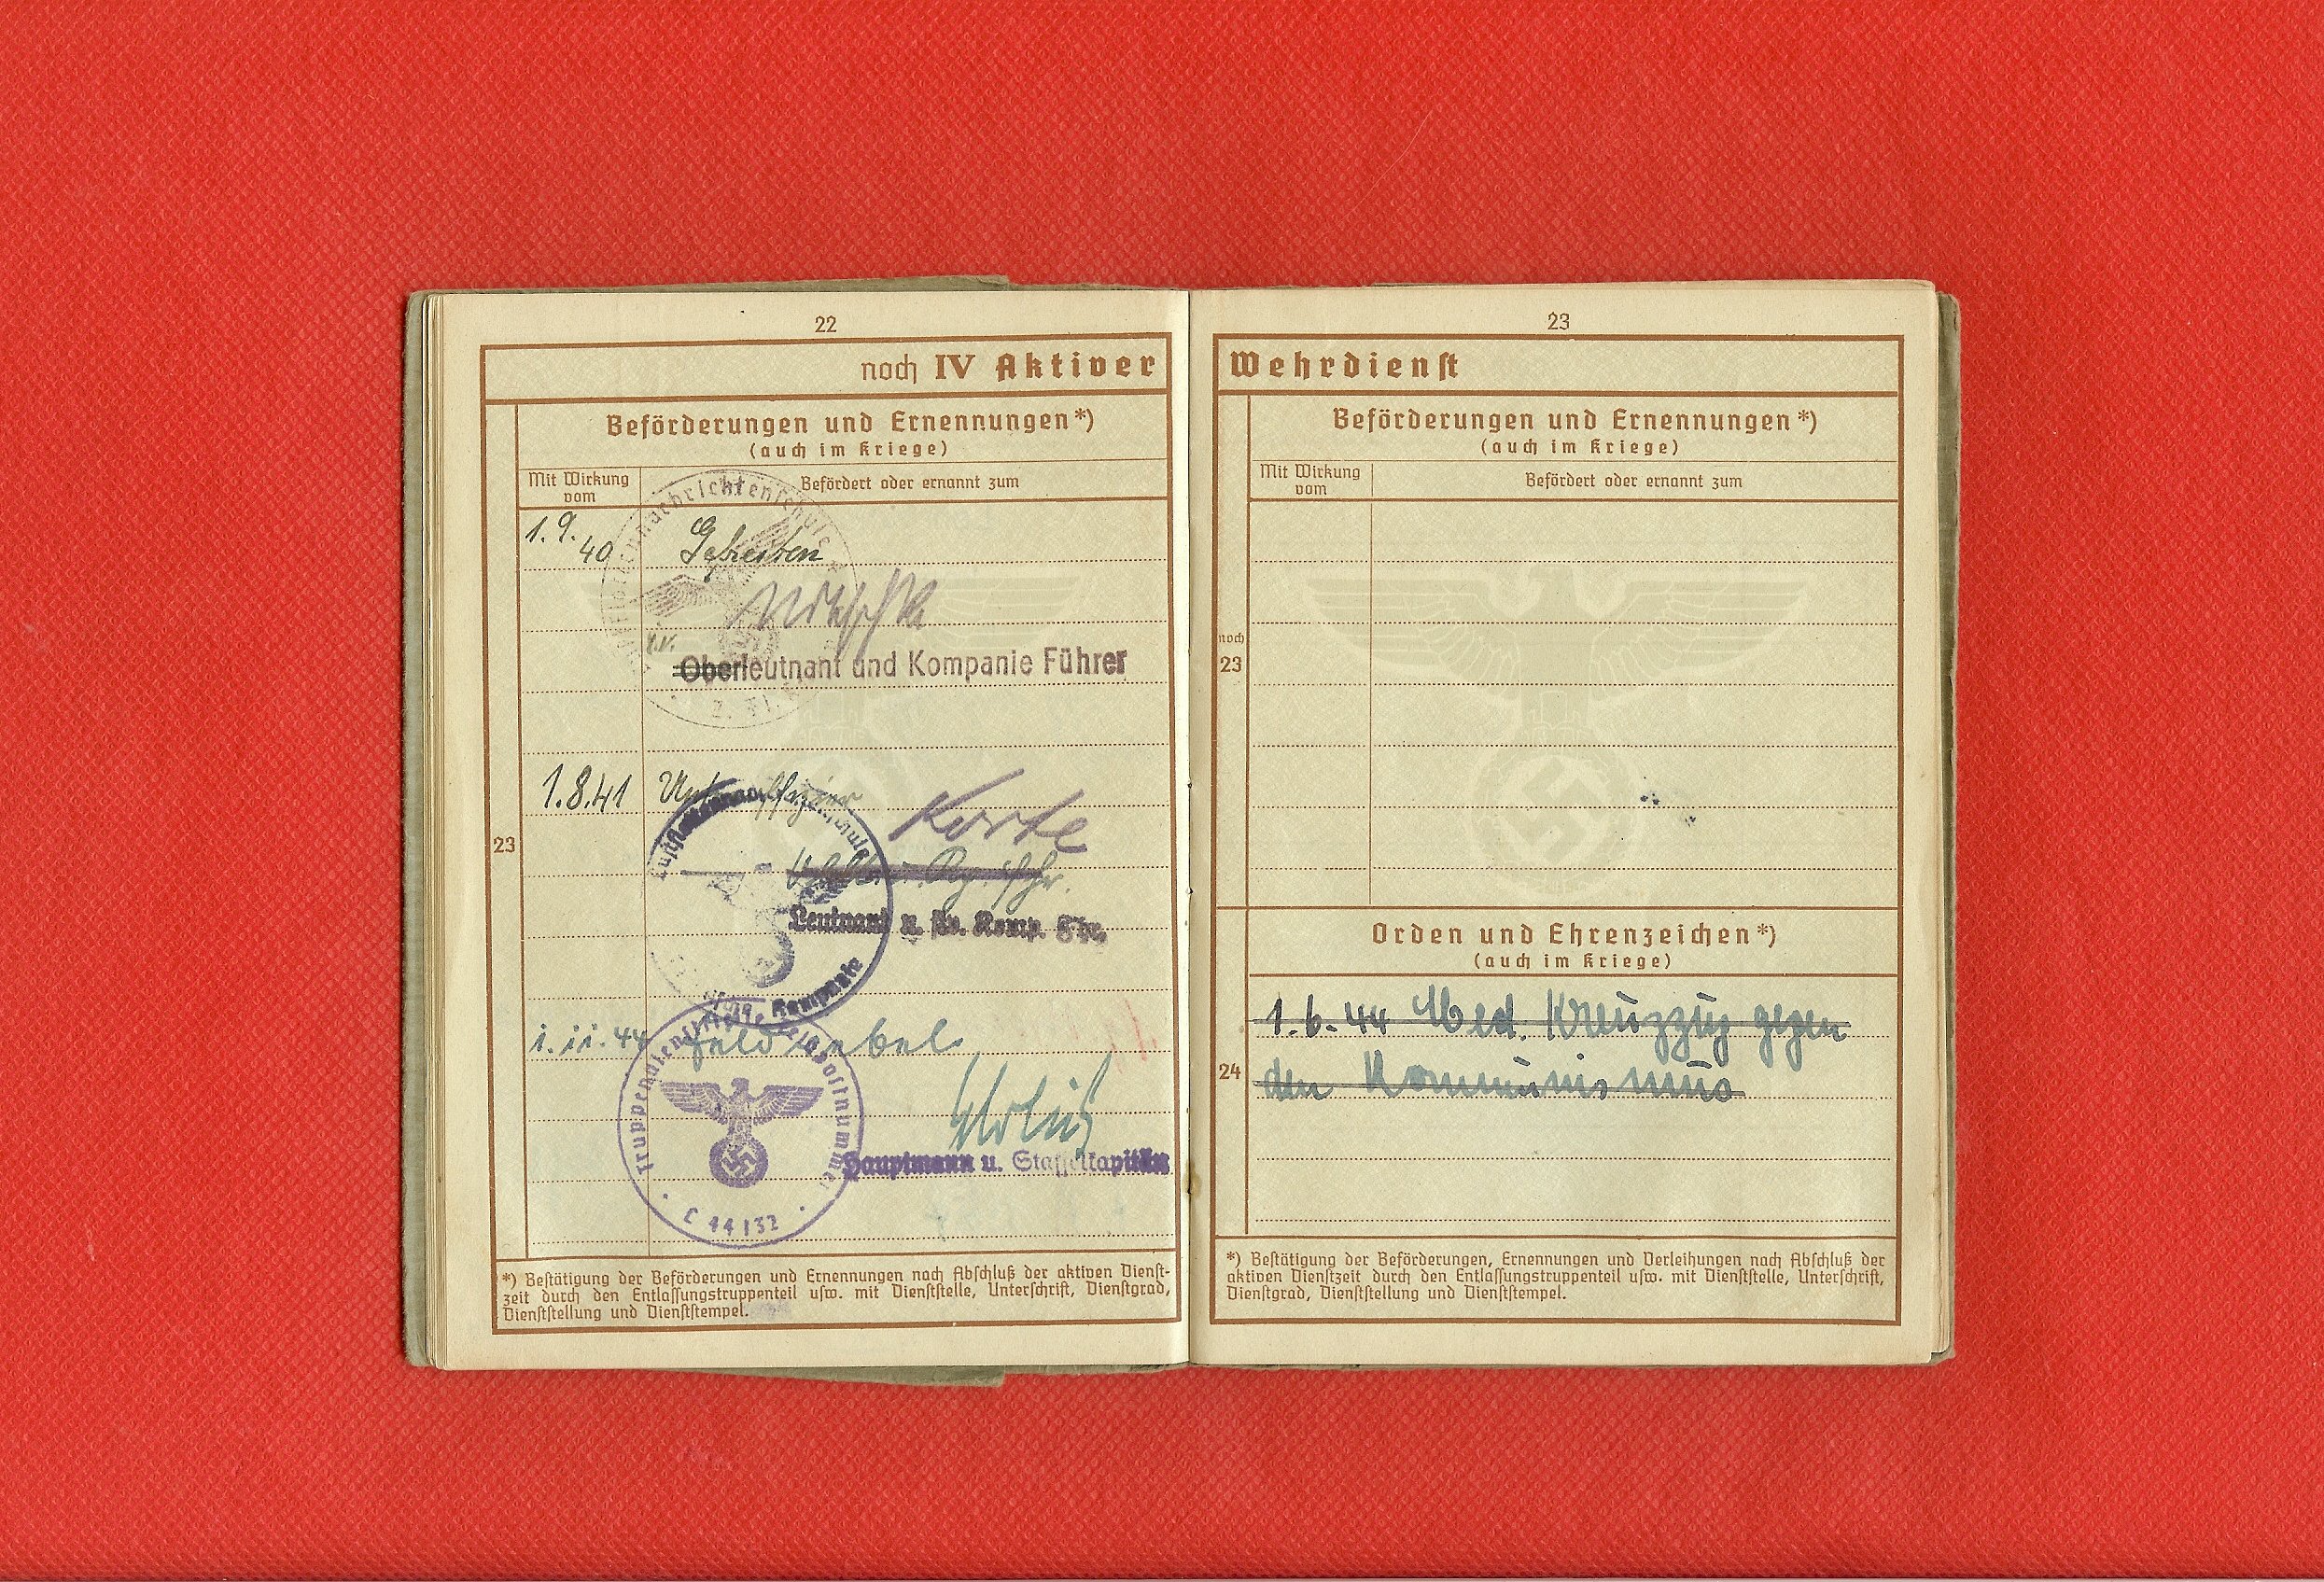 22
noch IV Aktiver
Beförderungen und Ernennungen*)
(auch im Kriege)
Mit Wirkung vom
Befördert oder ernannt zum
1.9.40 Gefreiten
Oberleutnant und Kompanie Führer
1.8.41 Unteroffizier
Korte
Leutnant u. Komp. Fhr.
Kompanie
23
1.11.44 Feldwebel
Hauptmann u. Staffelkapitän
L 44132
*) Bestätigung der Beförderungen und Ernennungen nach Abschluß der aktiven Dienst-
zeit durch den Entlassungstruppenteil usw. mit Dienststelle, Unterschrift, Dienstgrad,
Dienststellung und Dienststempel.
23
Wehrdienst
Beförderungen und Ernennungen*)
(auch im Kriege)
Mit Wirkung vom
Befördert oder ernannt zum
noch
23
Orden und Ehrenzeichen*)
(auch im Kriege)
1.6.44 Med. Kreuzzug gegen
24
den Kommunismus
*) Bestätigung der Beförderungen, Ernennungen und Verleihungen nach Abschluß der
aktiven Dienstzeit durch den Entlassungstruppenteil usw. mit Dienststelle, Unterschrift,
Dienstgrad, Dienststellung und Dienststempel.